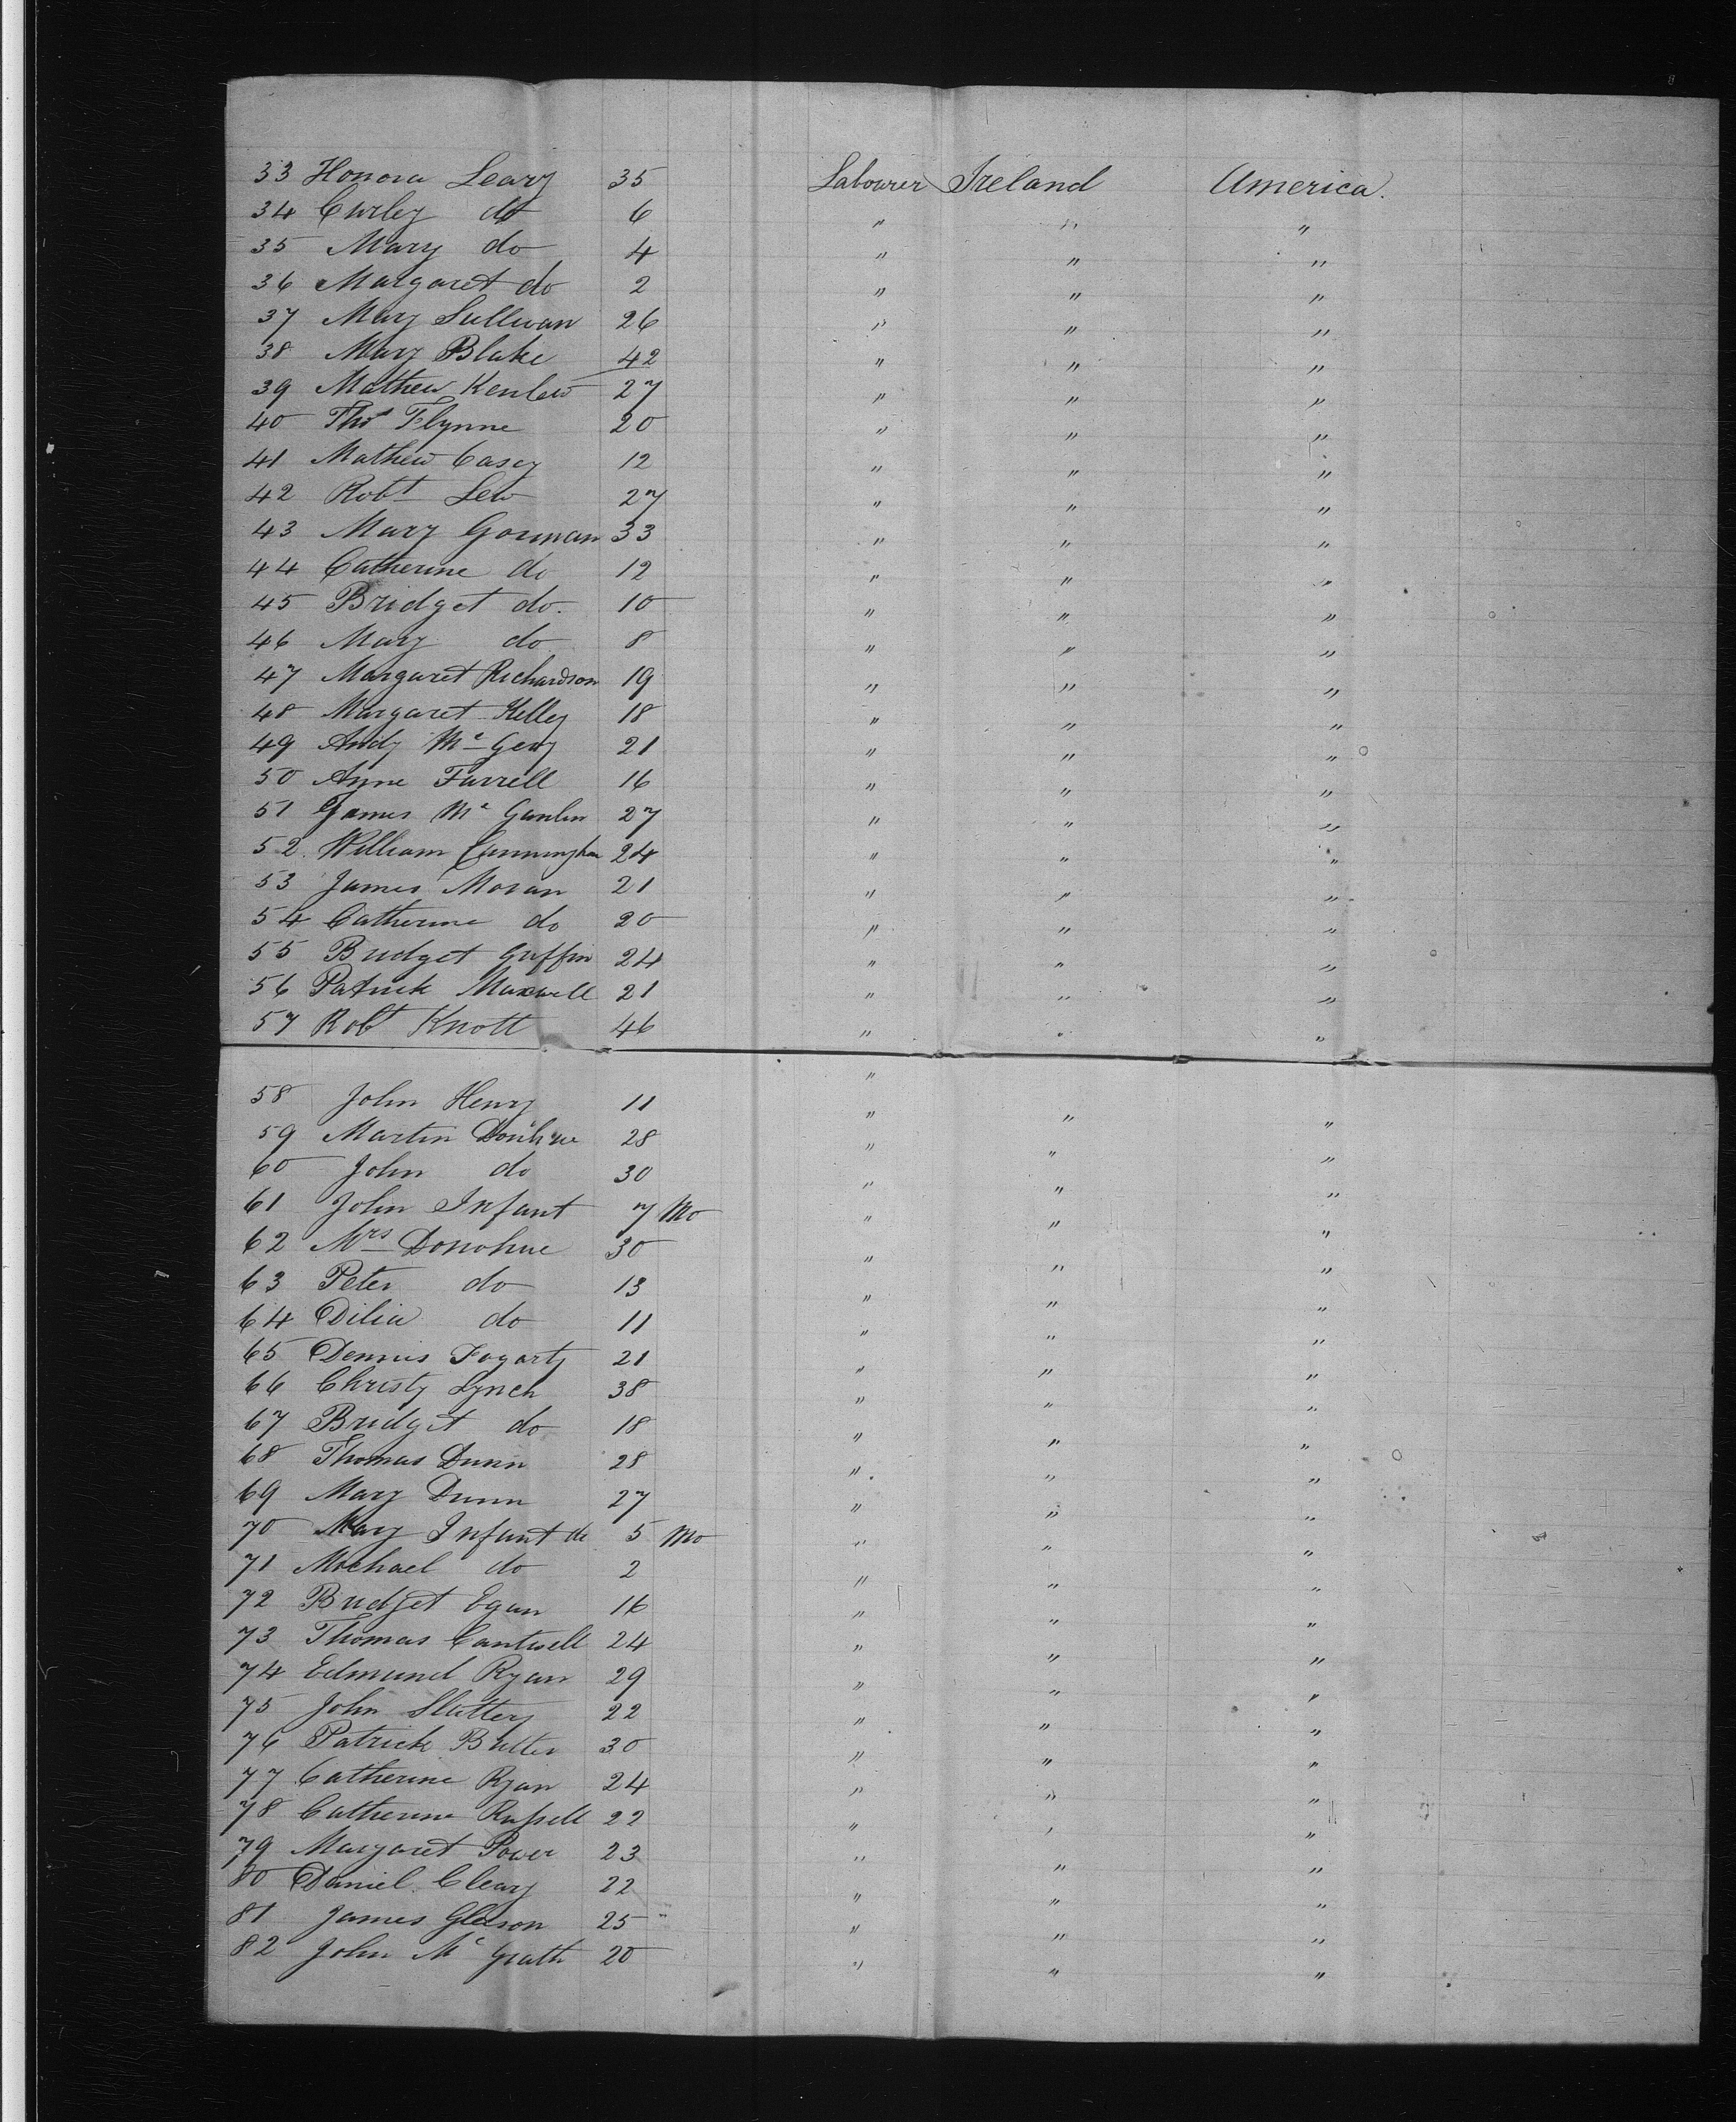 33 Honora Leary 35 Labourer Ireland America.
34 Curley do 6 " " "
35 Mary do 4 " " "
36 Margaret do 2 " " "
37 Mary Sullivan 26 " " "
38 Mary Blake 42 " " "
39 Mathew 27 " " "
40 Thos Flynne 20 " " "
41 Mathew Casey 12 " " "
42 Robt Lew 27 " " "
43 Mary Gorman 33 " " "
44 Catherine do 12 " " "
45 Bridget do. 10 " " "
46 Mary do 8 " " "
47 Margaret Richardson 19 " " "
48 Margaret Kelley 18 " " "
49 Andy Mc 21 " " "
50 Anne Farrell 16 " " "
51 James Mc 27 " " "
52. William Cunningham 24 " " "
53 James Moran 21 " " "
54 Catherine do 20 " " "
55 Bridget Griffin 24 " " "
56 Patrick Maxwell 21 " " "
57 Robt Knott 46 " " "
"
58 John Henry 11 " " "
59 Martin 28 " " "
60 John do 30 " " "
61 John Infant 7 Mo " " "
62 Mrs Donohue 30 " " "
63 Peter do 13 " " "
64 Dilia do 11 " " "
65 Dennis Fogarty 21 " " "
66 Christy Lynch 38 " " "
67 Bridget do 18 " " "
68 Thomas Dunn 28 " " "
69 Mary Dunn 27 " " "
70 Mary Infant do 5 Mo " " "
71 Michael do 2 " " "
72 Bridget Egan 16 " " "
73 Thomas Cantwell 24 " " "
74 Edmund Ryan 29 " " "
75 John Slattery 22 " " "
76 Patrick Butler 30 " " "
77 Catherine Ryan 24 " " "
78 Catherine Russell 22 " " "
79 Margaret Power 23 " " "
80 Daniel Cleary 22 " " "
81 James Gleason 25 " " "
82 John Mc Grath 20 " " "